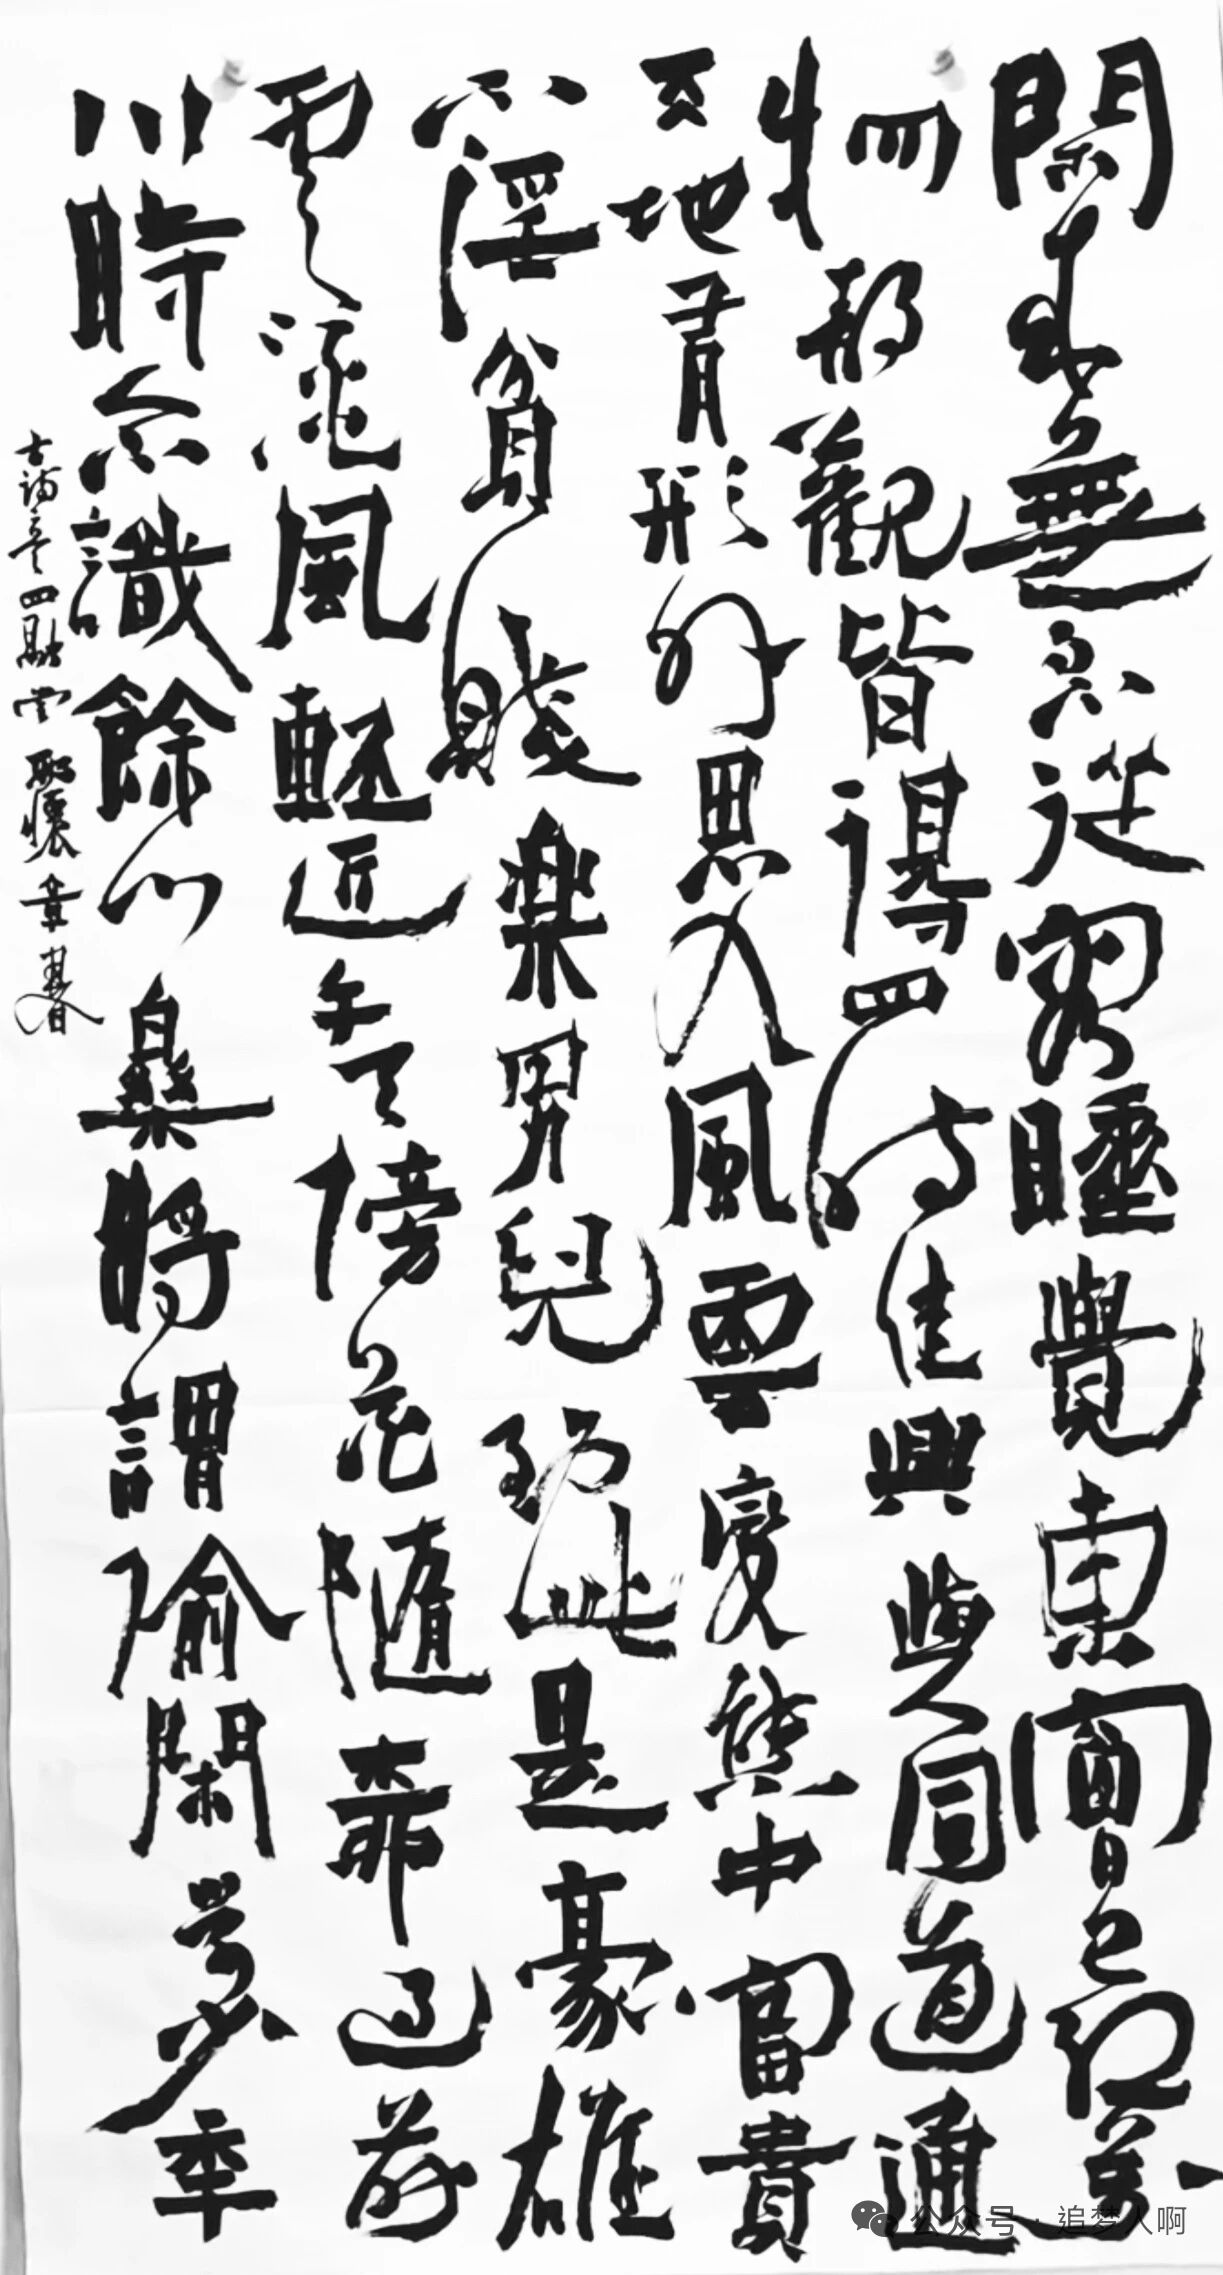 閑來無事不從容睡覺東窗日已紅萬
物静觀皆得四時佳興與人同道通
天地有形外思入風雲變態中富貴
不淫貧賤樂男兒到此是豪雄
雲淡風輕近午天傍花隨柳過前
川時人不識餘心樂將謂偷閑學少年
古詩 四融堂 章
公众号·追梦人啊